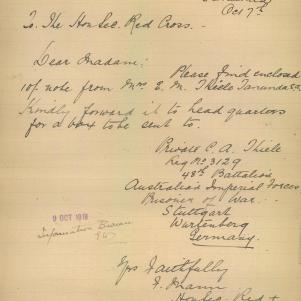 Oct 7th
To. The Hon Sec. Red Cross.
Dear Madam:
Please find enclosed
10/- note from Mrs E. M. Thiele Tanunda
Kindly forward it to head quarters
for a box to be sent to.
Private C. A. Thiele
Reg No 3129
48th Battalion
Australia's Imperial Forces
Prisoner of War.
Stuttgart
Wurtenberg
Germany.
9 OCT 1918
Information Bureau
Yrs Faithfully
Hon Sec. Red +